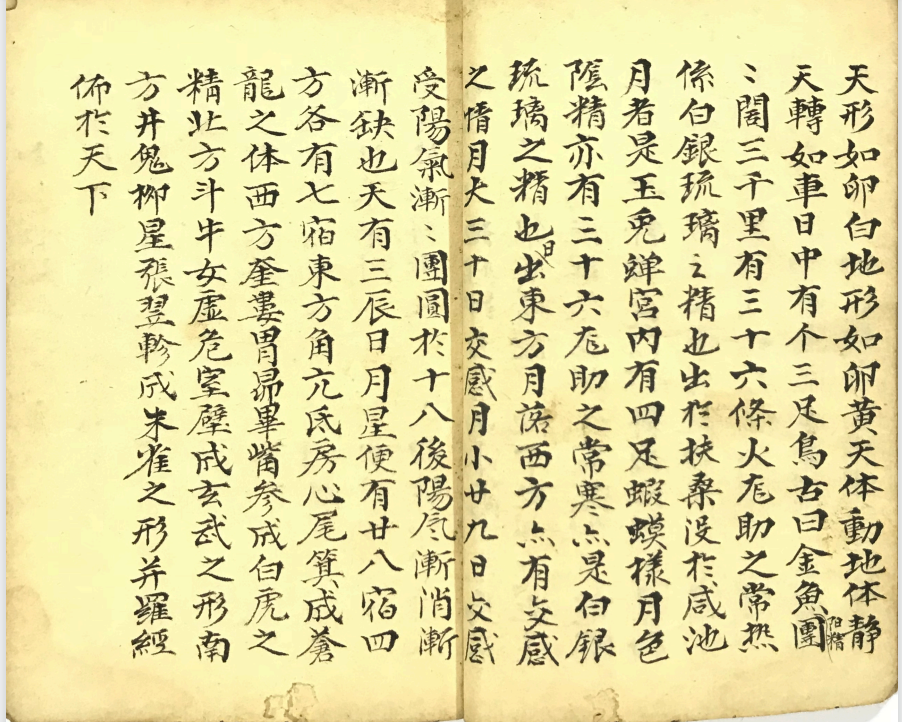 天形如卵白地形如卵黄天体動地体静
天轉如車日中有个三足鳥古曰金魚團
〻闊三千里有三十六條火尨助之常熱
係白銀琉璃之精也出於扶桑没於咸池
月者是玉兎蟬宮内有四足蝦蟆樣月色
陰精亦有三十六尨助之常寒亦是白銀
琉璃之精也日出東方月落西方亦有交感
之情月大三十日交感月小廿九日交感
受陽氣漸〻團圓於十八後陽气漸消漸
漸缺也天有三辰日月星便有廿八宿四
方各有七宿東方角亢氐房心尾箕成蒼
龍之体西方奎婁胃昴畢觜参成白虎之
精北方斗牛女虛危室壁成玄武之形南
方井鬼柳星張翌軫成朱雀之形并羅經
佈於天下